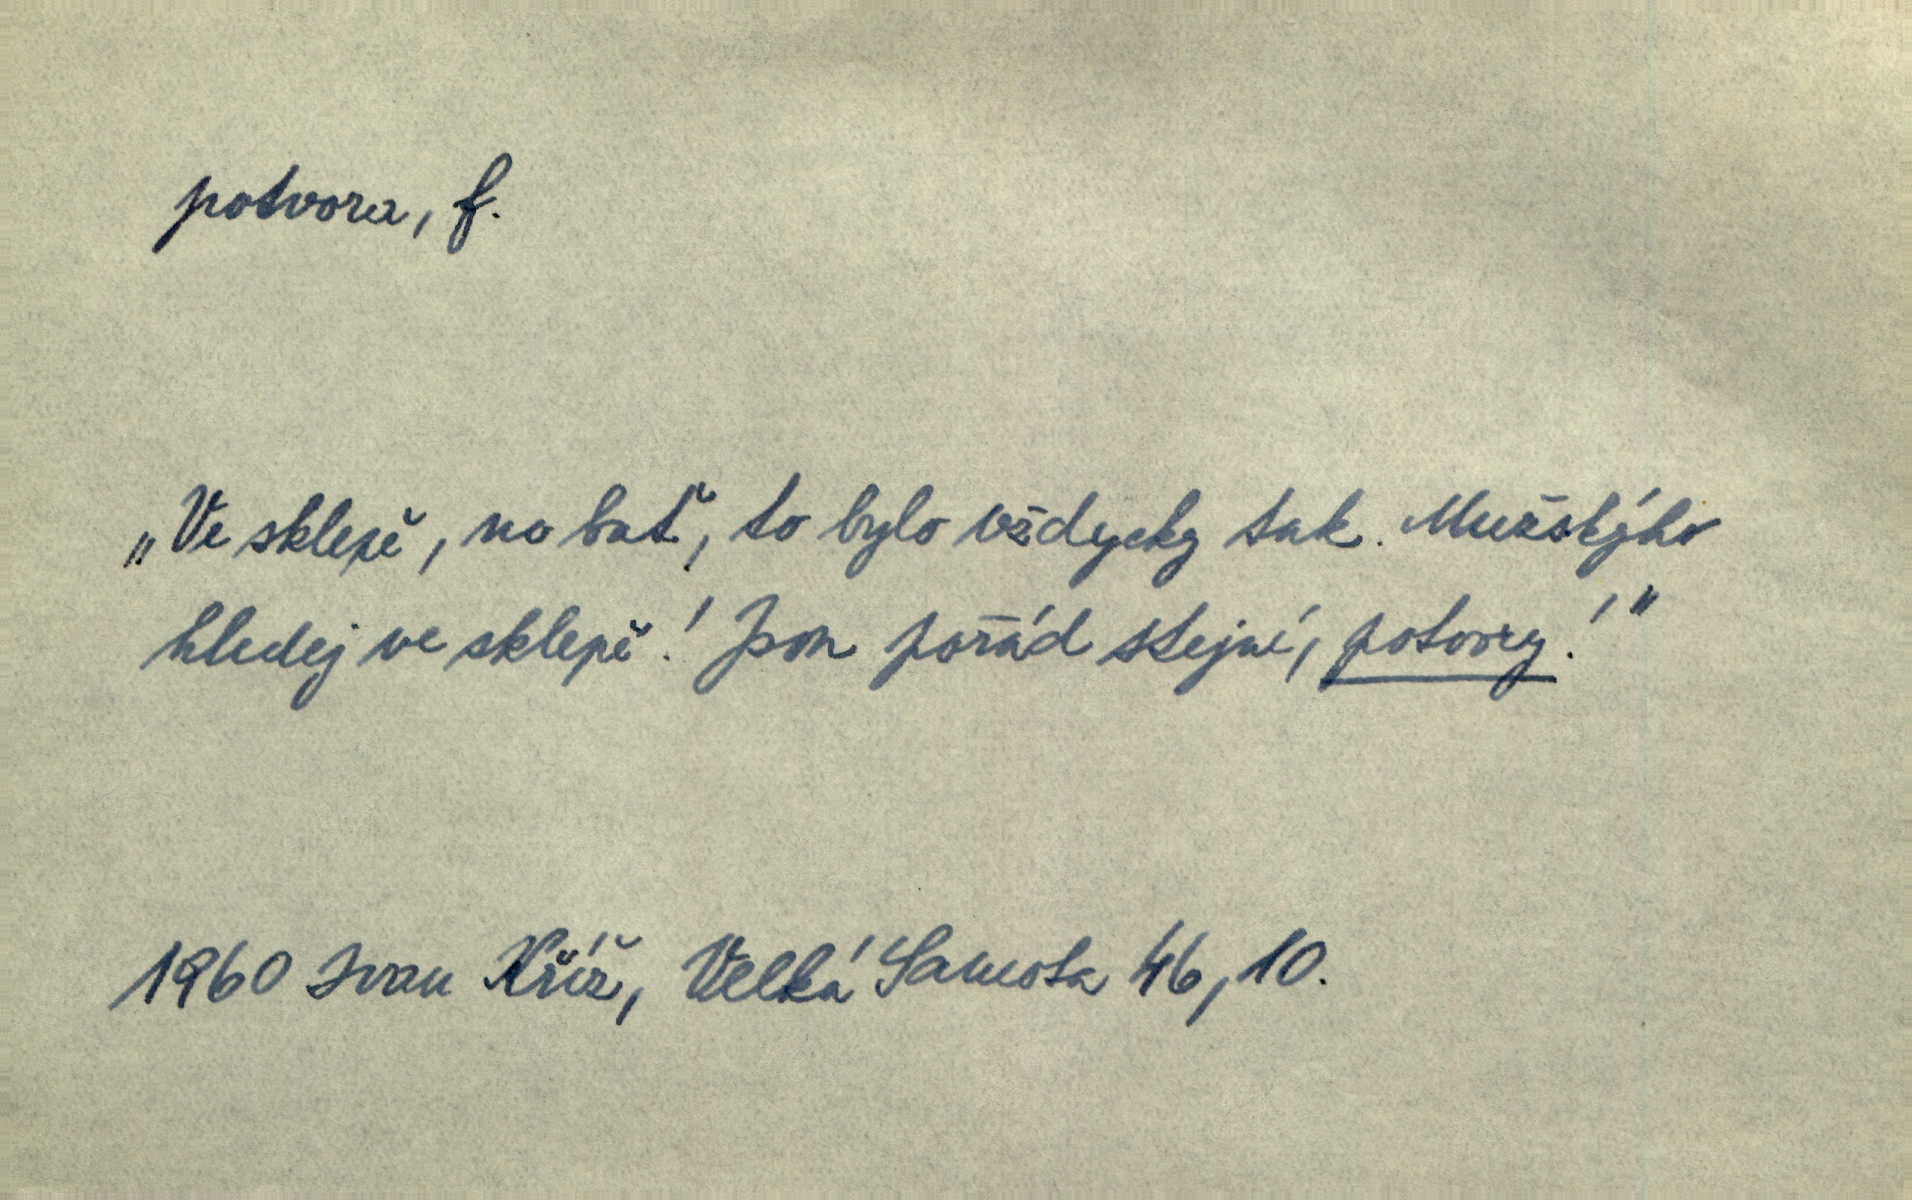 potvora, f.
„Ve sklepě, no bať, to bylo vždycky tak. Mužskýho
hledej ve sklepě! Json pořád stejní, potvory!"
1960 Ivan Kříž, Velká Samota 46, 10.